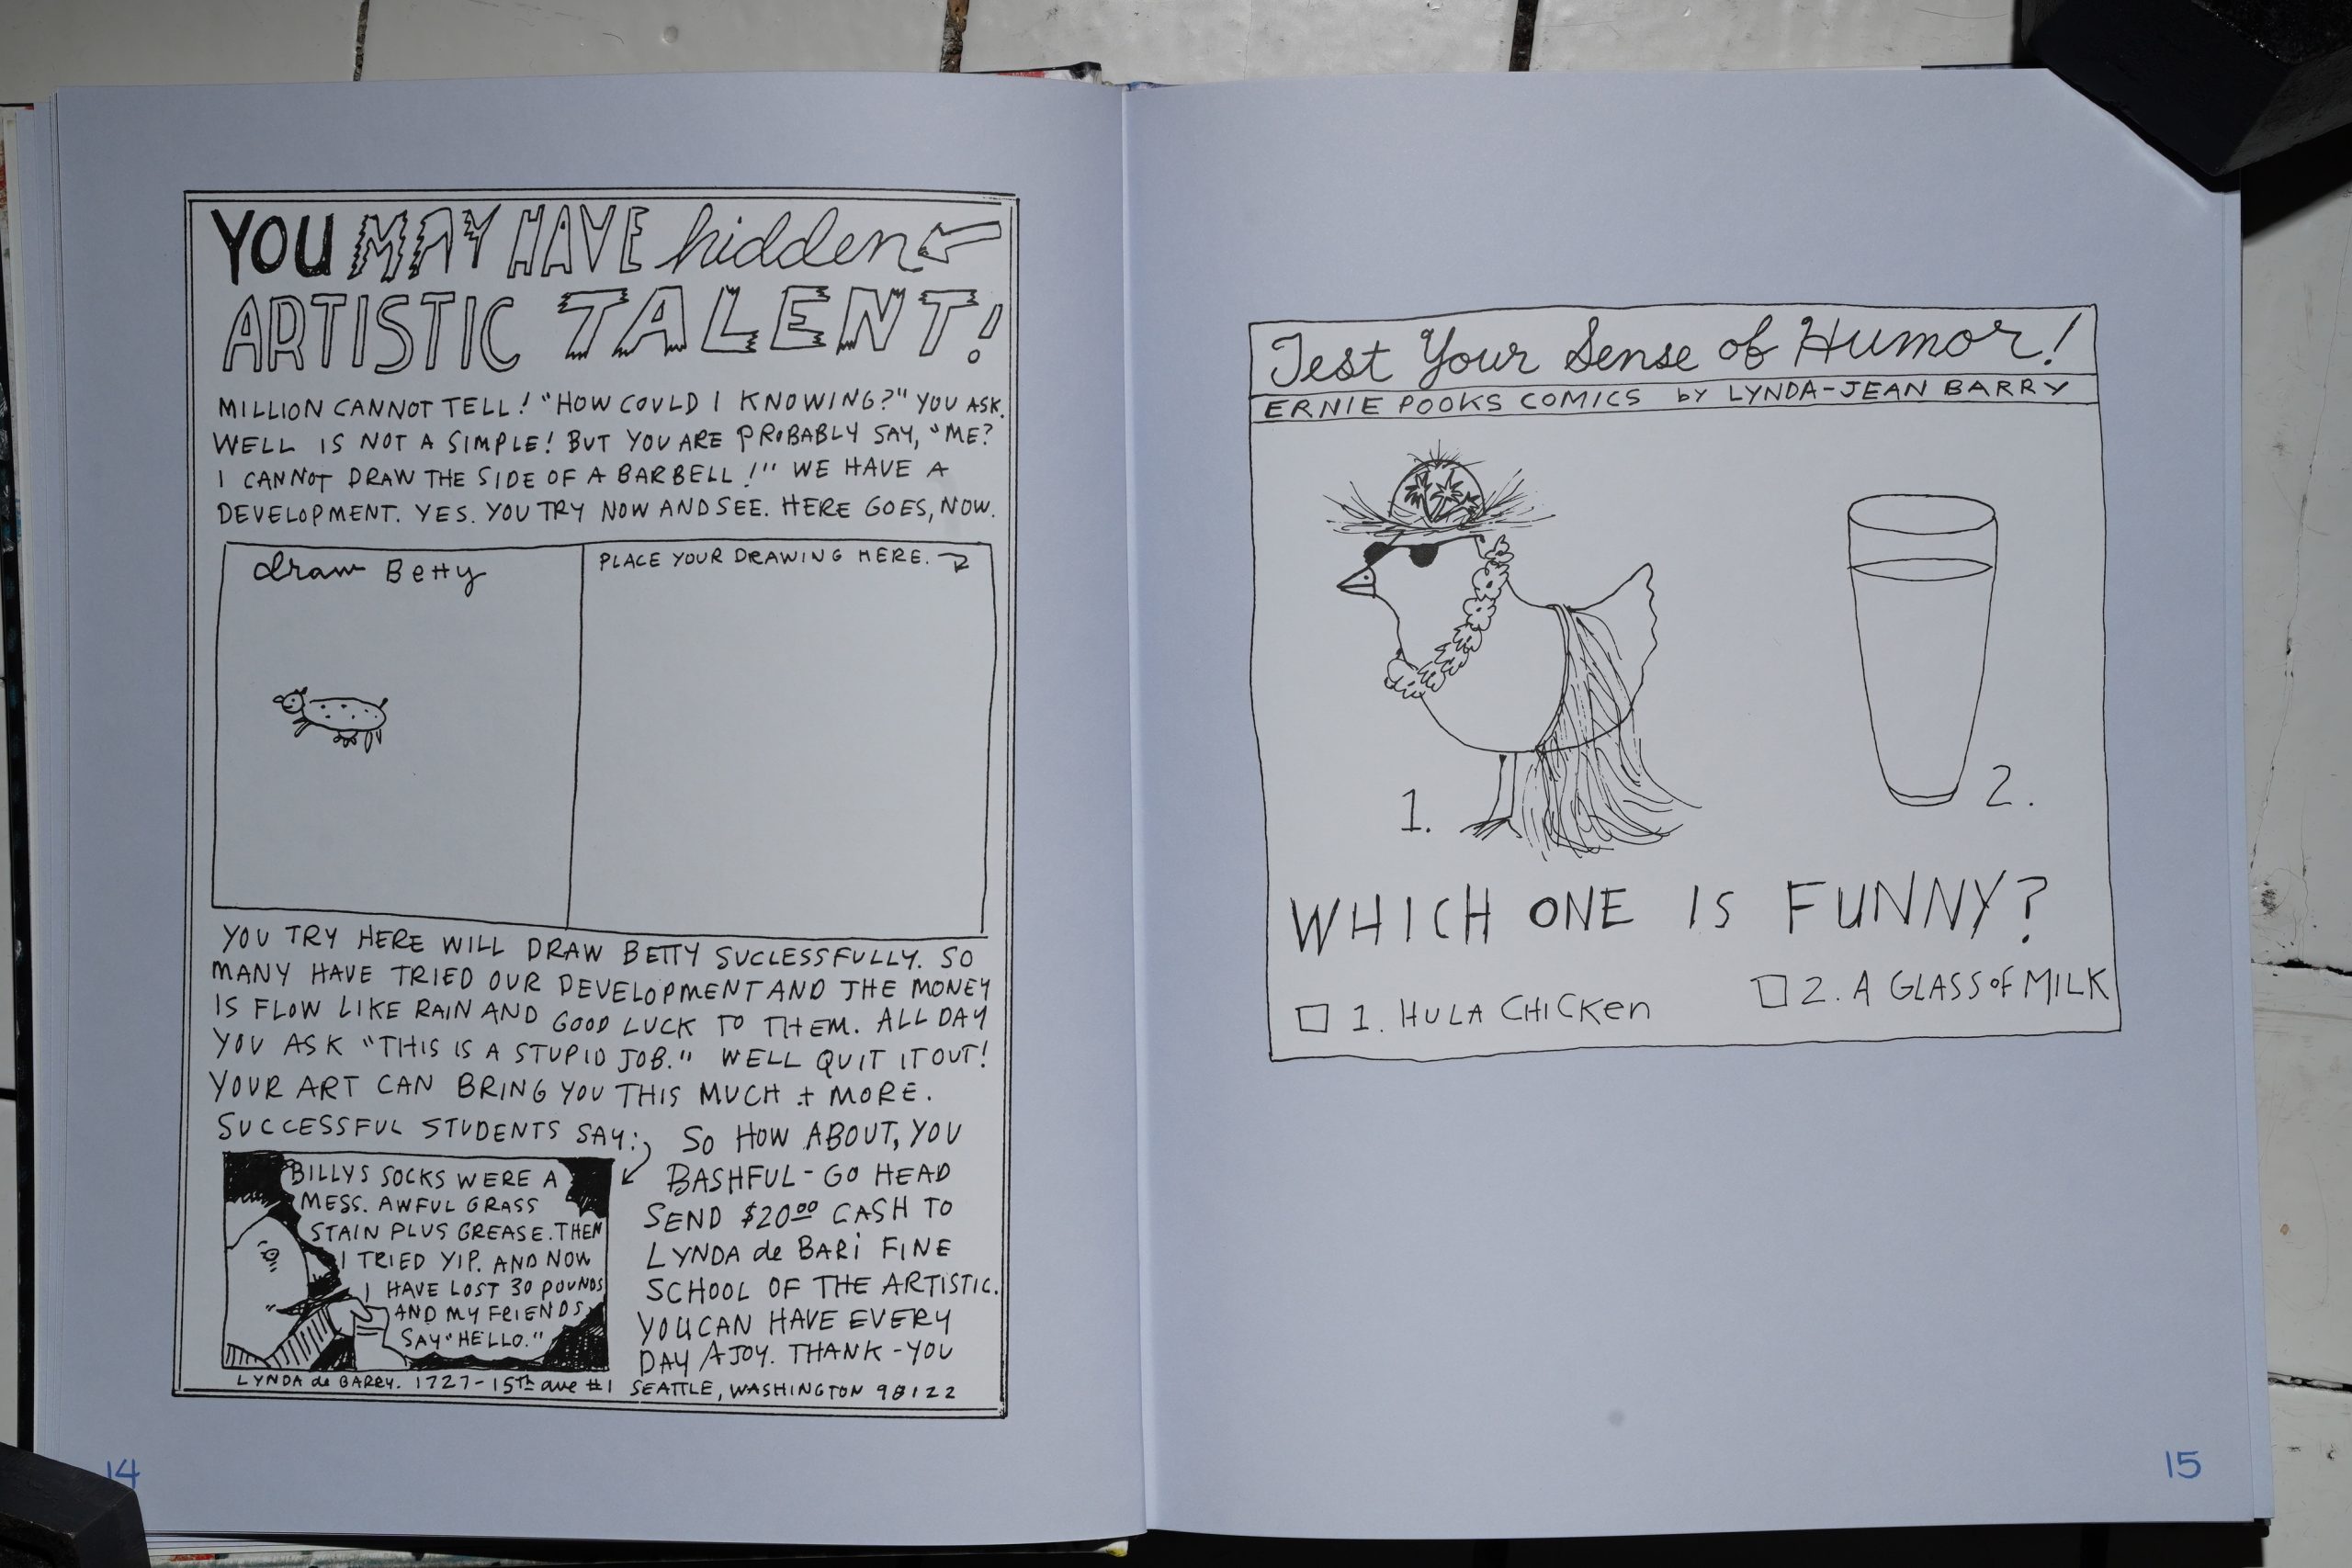 YOU MAY HAVE hidden
ARTISTIC TALENT!
MILLION CANNOT TELL! "HOW COULD I KNOWING?" YOU ASK.
WELL IS NOT A SIMPLE! BUT YOU ARE PROBABLY SAY, "ME?
I CANNOT DRAW THE SIDE OF A BARBELL!" WE HAVE A
DEVELOPMENT. YES. YOU TRY NOW AND SEE. HERE GOES, NOW.
draw Betty
PLACE YOUR DRAWING HERE.
YOU TRY HERE WILL DRAW BETTY SUCLESSFULLY. SO
MANY HAVE TRIED OUR DEVELOPMENT AND THE MONEY
IS FLOW LIKE RAIN AND GOOD LUCK TO THEM. ALL DAY
YOU ASK "THIS IS A STUPID JOB." WELL QUIT IT OUT!
YOUR ART CAN BRING YOU THIS MUCH + MORE.
SUCCESSFUL STUDENTS SAY:
BILLYS SOCKS WERE A
MESS. AWFUL GRASS
STAIN PLUS GREASE. THEN
I TRIED YIP. AND NOW
I HAVE LOST 30 POUNDS
AND MY FRIENDS
SAY "HELLO."
SO HOW ABOUT, YOU
BASHFUL - GO HEAD
SEND $20.00 CASH TO
LYNDA de BARi FINE
SCHOOL OF THE ARTISTIC.
YOU CAN HAVE EVERY
DAY A JOY. THANK-YOU
LYNDA de BARRY. 1727-15Th ave #1 SEATTLE, WASHINGTON 98122
14
Test Your Sense of Humor!
ERNIE POOKS COMICS by LYNDA-JEAN BARRY
1.
2.
WHICH ONE IS FUNNY?
1. HULA CHICKen
2. A GLASS of MILK
15